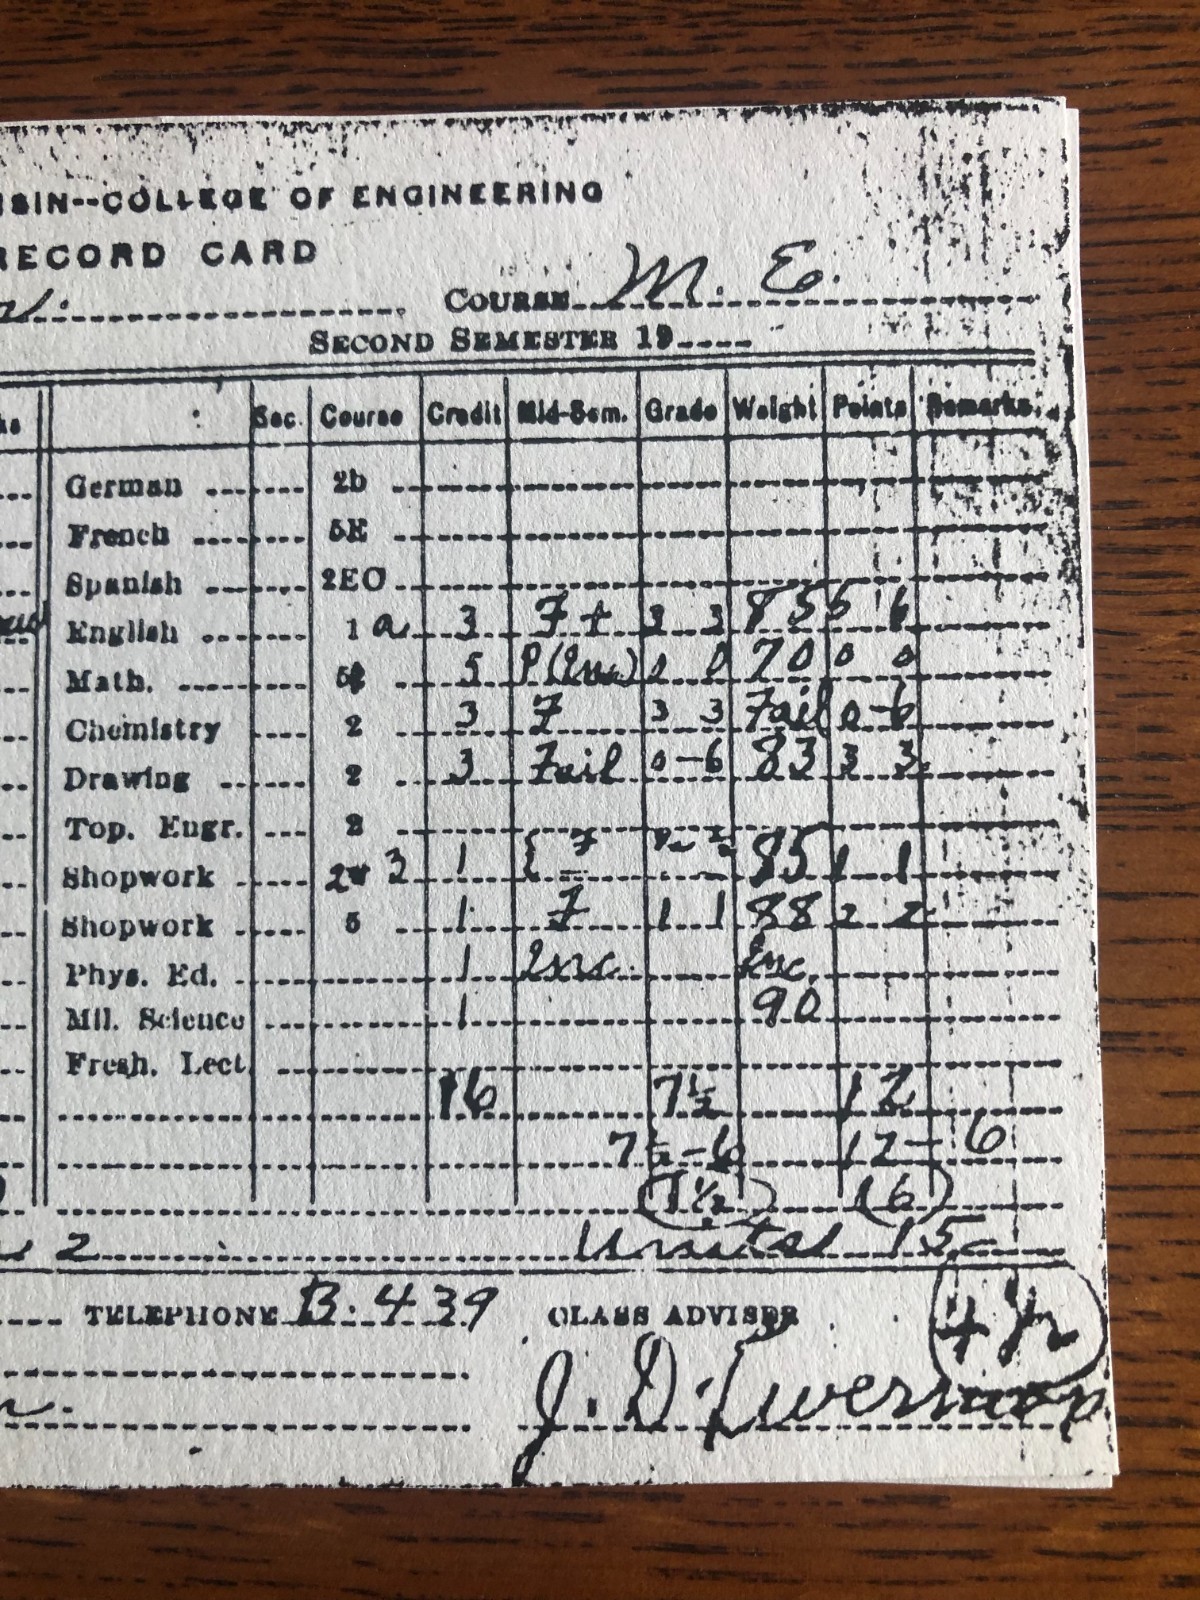 SIN--COLLEGE OF ENGINEERING
RECORD CARD
COURSE M. E.
SECOND SEMESTER 19
Sec. Course Credit Mid-Sem. Grade Weight Points Remarks
German 2b
French 5E
Spanish 2EO
English 1 a 3 F + 3 3 85 5 6
Math. 5 P (Inc) 0 0 70 0 0
Chemistry 2 3 F 3 3 Fail 0-6
Drawing 2 3 Fail 0-6 83 3 3
Top. Engr. 2
Shopwork 3 1 F 85 1 1
Shopwork 5 1 F 1 1 88 2 2
Phys. Ed. 1 Inc. Inc.
Mil. Science 1 90
Fresh. Lect.
16 7½ 12
7½-6 12-6
1½ 16
2 15
TELEPHONE B. 439 CLASS ADVISER 4½
J. D.